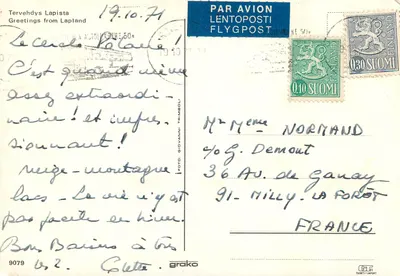 Tervehdys Lapista
Greetings from Lapland
19.10.71
PAR AVION
LENTOPOSTI
FLYGPOST
0,10 SUOMI
0,30 SUOMI
Le Cercle Polaire !
C'est quand même
assez extraordi-
naire ! et impres-
sionnant !
neige - montagne
lacs - La vie n'y est
pas facile en hiver.
Bons Baisers à tous
les 2. Colette
Mr Mme NORMAND
c/o G. Demont
36 Av. de Ganay
91 - MILLY-LA FORÊT
FRANCE
FOTO GIOVANNI TRIMBOLI
9079
grako